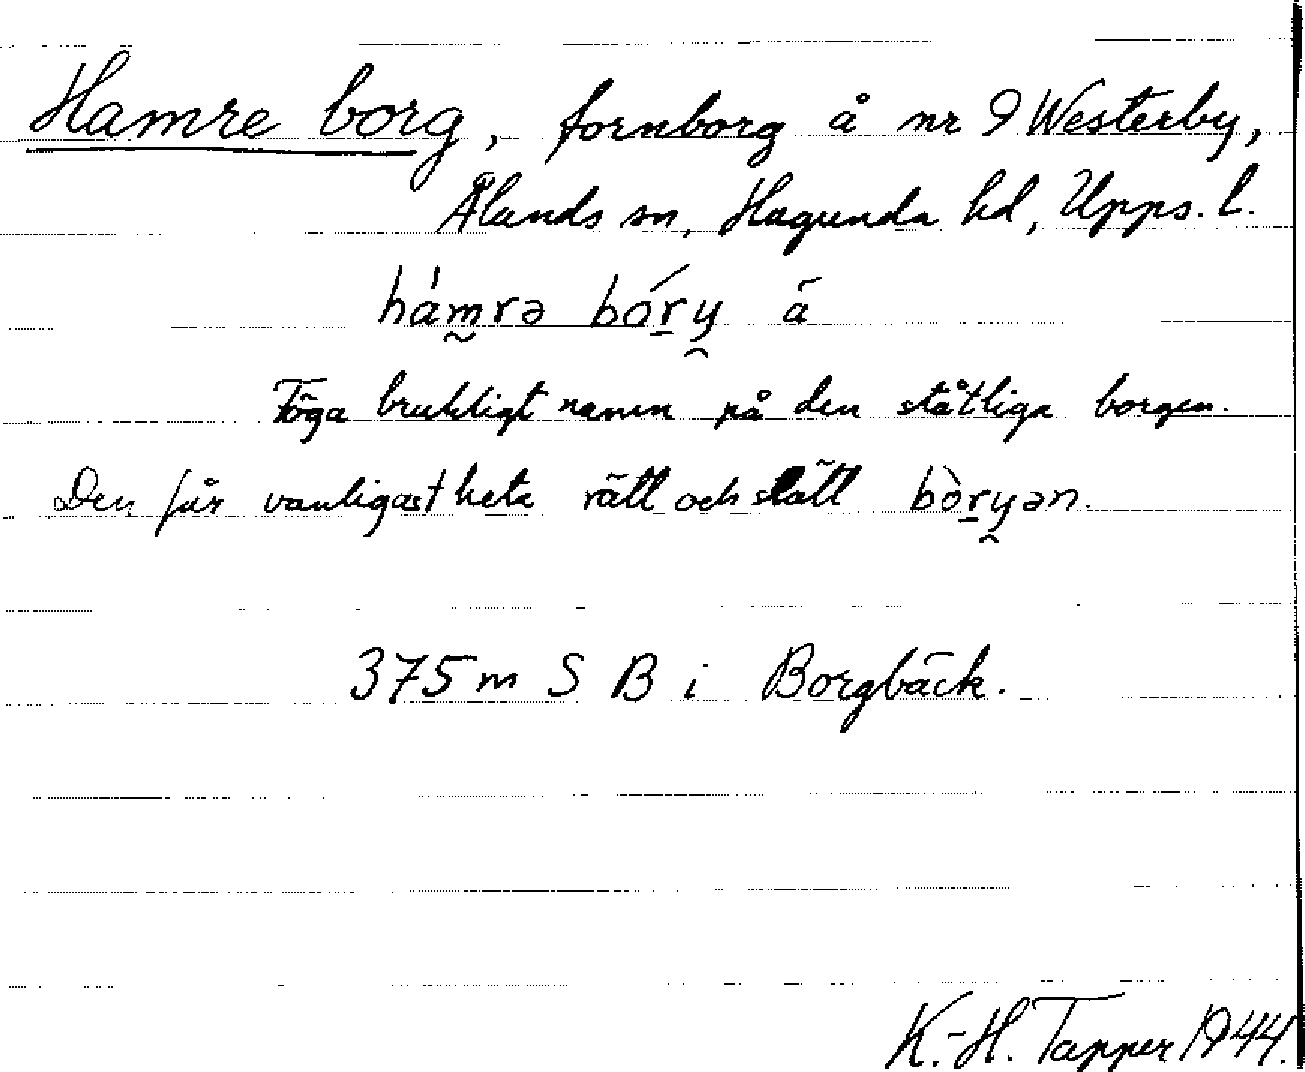 Hamre borg, fornborg å nr 9 Westerby,
Ålands sn, Hagunda hd, Upps. l.
hámrə bóry å
Föga brukligt namn på den ståtliga borgen.
Den får vanligast heta rätt och slätt bòryən.
375 m S B i Borgbäck.
K.-H. Tapper 1944.